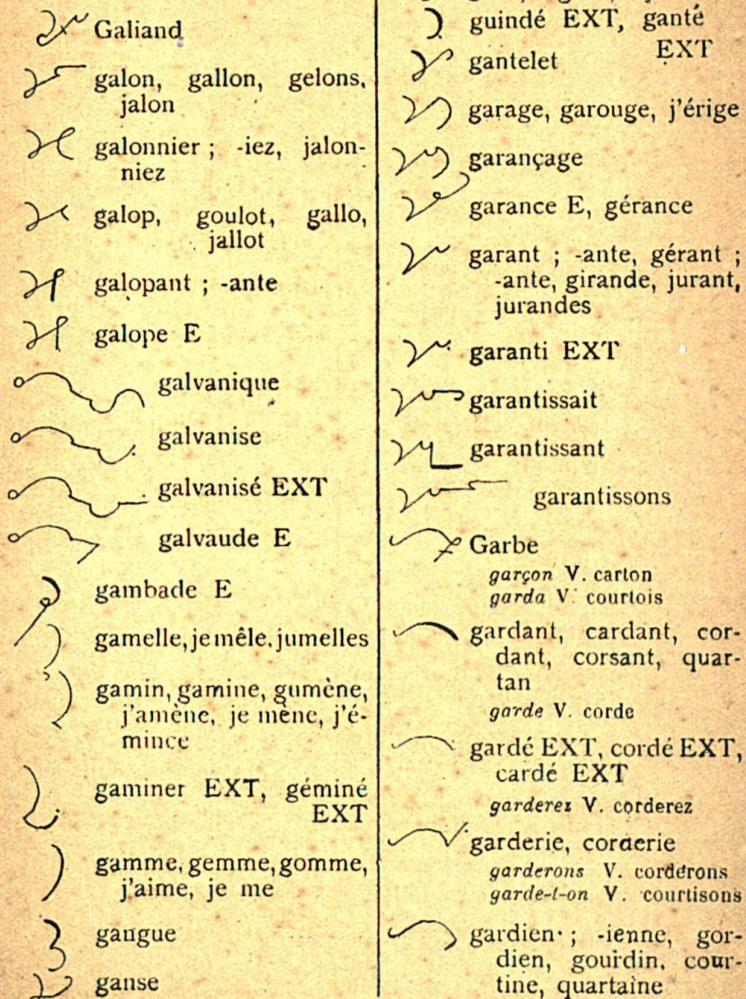 Galiand
galon, gallon, gelons,
jalon
galonnier ; -iez, jalon-
niez
galop, goulot, gallo,
jallot
galopant ; -ante
galope E
galvanique
galvanise
galvanisé EXT
galvaude E
gambade E
gamelle, je mêle, jumelles
gamin, gamine, gumène,
j'amène, je mène, j'é-
mince
gaminer EXT, géminé
EXT
gamme, gemme, gomme,
j'aime, je me
gangue
ganse
guindé EXT, ganté
EXT
gantelet
garage, garouge, j'érige
garançage
garance E, gérance
garant ; -ante, gérant ;
-ante, girande, jurant,
jurandes
garanti EXT
garantissait
garantissant
garantissons
Garbe
garçon V. carton
garda V. courtois
gardant, cardant, cor-
dant, corsant, quar-
tan
garde V. corde
gardé EXT, cordé EXT,
cardé EXT
garderez V. corderez
garderie, corderie
garderons V. corderons
garde-t-on V. courtisons
gardien ; -ienne, gor-
dien, gourdin, cour-
tine, quartaine